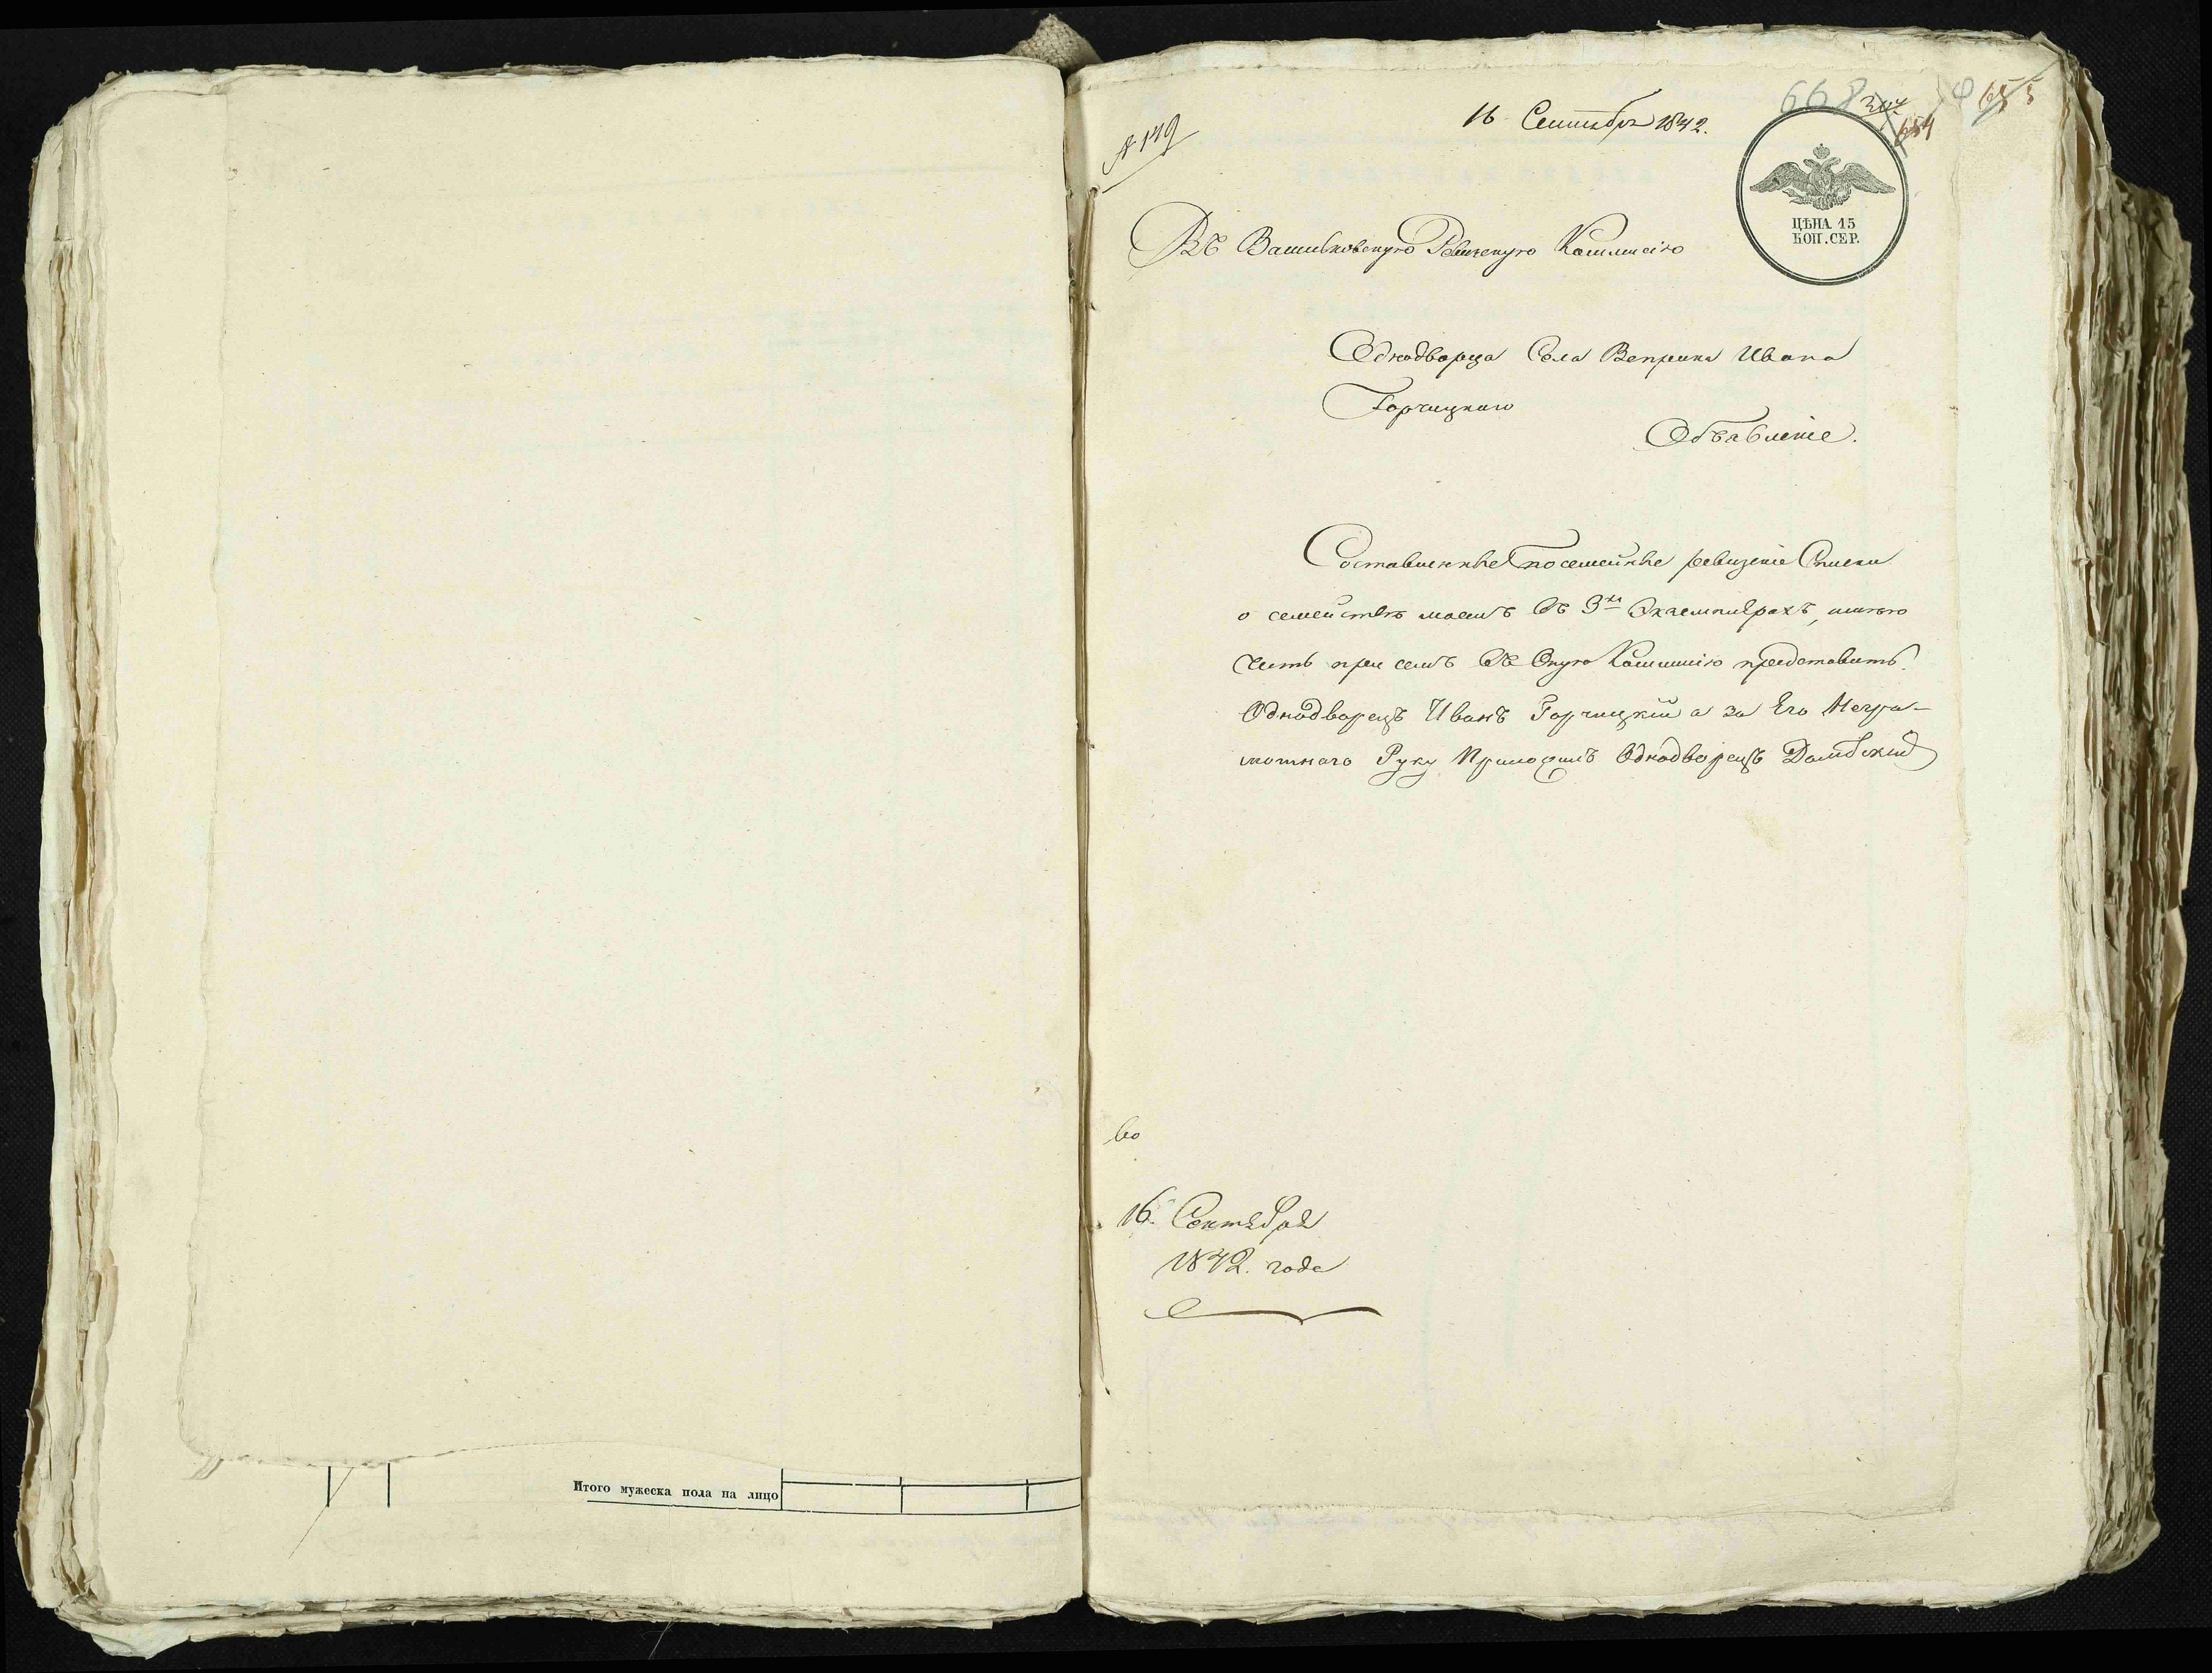 Итого мужеска пола на лицо
№ 149
16 Сентября 1842.
668
654
ЦѢНА 15
КОП. СЕР.
Въ Васильковскую Ревизскую Коммисію
Однодворца Села Веприка Ивана
Горчицкаго
Объявленіе.
Составленные посемейные ревизскіе Списки
о семействѣ моемъ въ 3хъ Экземплярахъ, имѣю
честь при семъ въ Оную Коммисію представить.
Однодворецъ Иванъ Горчицкій а за Его Негра-
мотнаго Руку Приложилъ Однодворецъ Домбскій
16. Сентября
1842. года